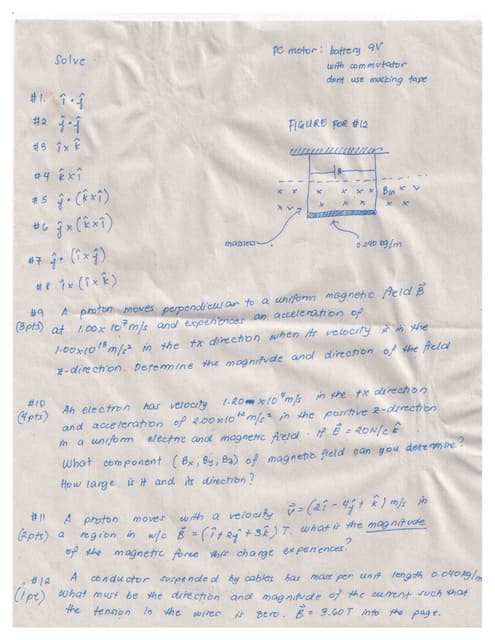 Solve
DC motor: battery 9V
with commutator
dont use masking tape
#1. î · ĵ
#2 ĵ · ĵ
#3 î x k̂
#4 k̂ x î
#5 ĵ · (k̂ x î)
#6 ĵ x (k̂ x î)
#7 ĵ · (î x ĵ)
#8 î x (î x k̂)
FIGURE FOR #12
x x x x x x Bin x
x x x x x x
massless
0.040 kg/m
#9 A proton moves perpendicular to a uniform magnetic field B⃗
(3pts) at 1.00 x 10⁷ m/s and experiences an acceleration of
1.00x10¹³ m/s² in the +x direction when its velocity is in the
z-direction. Determine the magnitude and direction of the field
#10 An electron has velocity 1.20 x10⁴ m/s in the +x direction
(4pts) and acceleration of 2.00x10¹² m/s² in the positive z-direction
in a uniform electric and magnetic field. If E⃗ = 20N/c k̂
What component (Bx, By, Bz) of magnetic field can you determine?
How large is it and its direction?
#11 A proton moves with a velocity v⃗ = (2î - 4ĵ + k̂) m/s in
(2pts) a region in w/c B⃗ = (î + 2ĵ + 3k̂) T. what is the magnitude
of the magnetic force this charge experiences?
#12 A conductor suspended by cables has mass per unit length 0.040 kg/m
(1pt) What must be the direction and magnitude of the current such that
the tension in the wires is zero. B⃗ = 3.60T into the page.